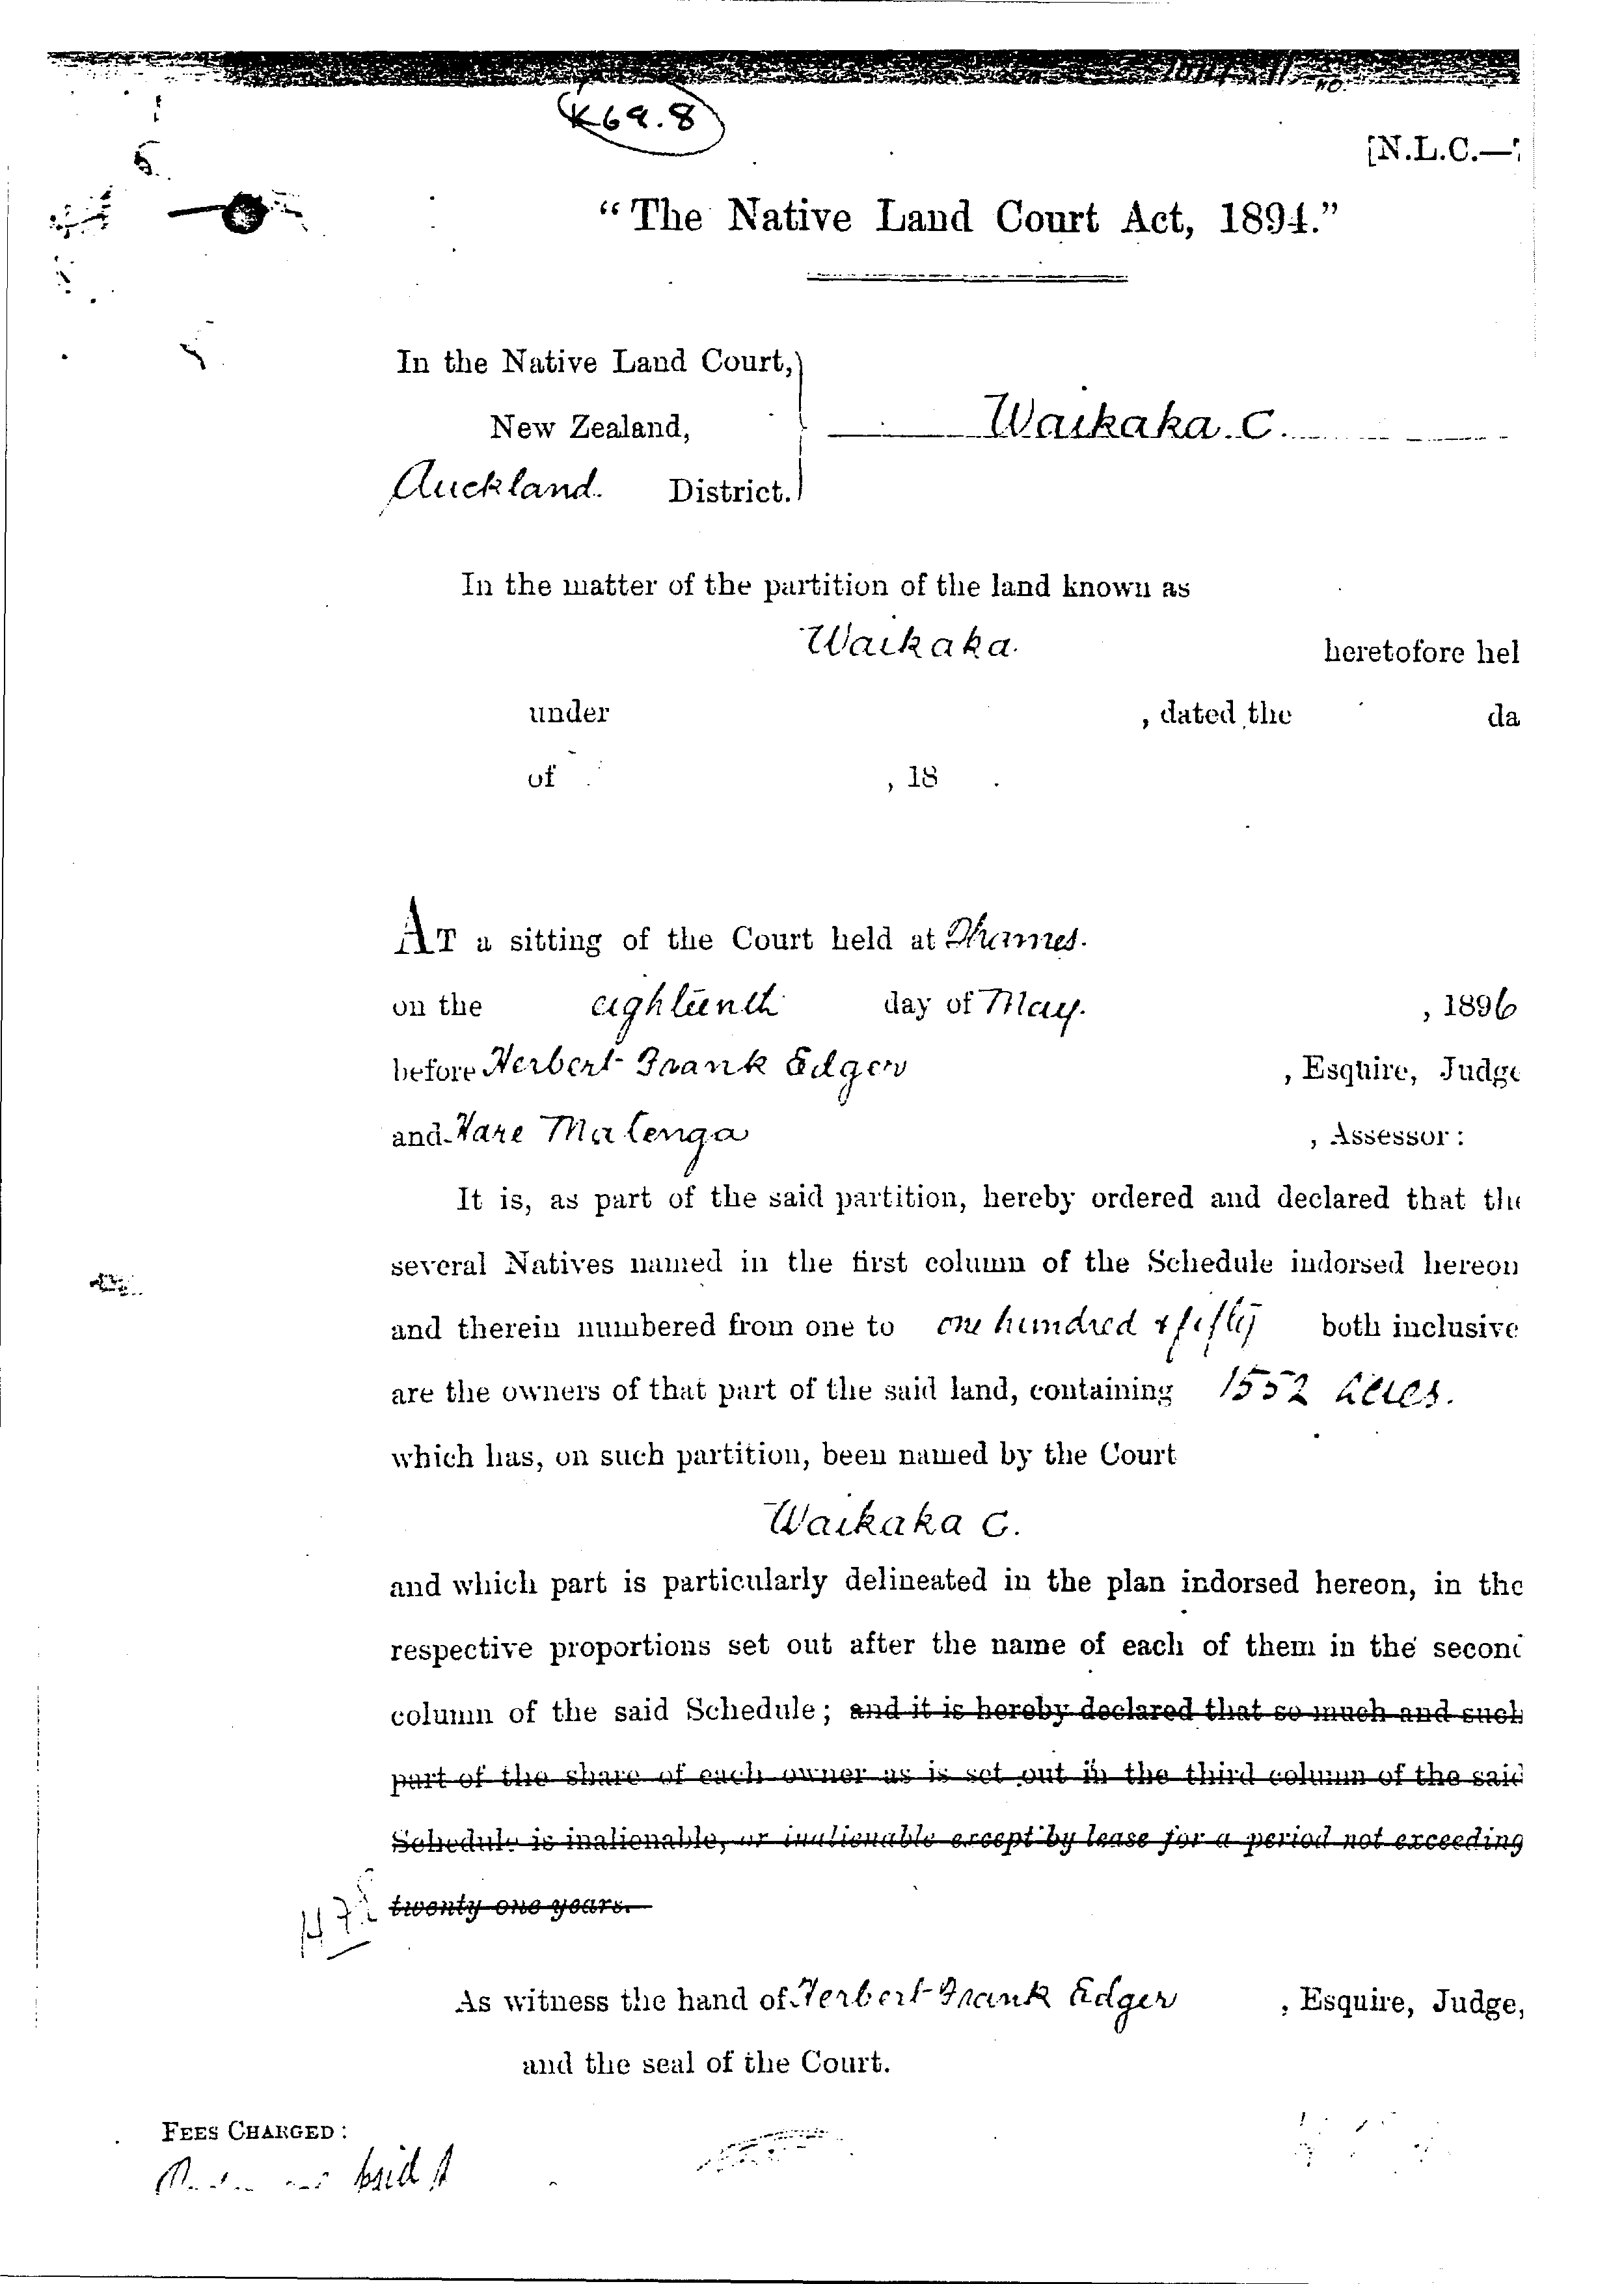 K69.8
[N.L.C.—
“The Native Land Court Act, 1894.”
In the Native Land Court,
New Zealand,
Waikaka C.
Auckland. District.
In the matter of the partition of the land known as
Waikaka. heretofore hel
under , dated the da
of , 18 .
AT a sitting of the Court held at Thames.
on the eighteenth day of May. , 1896
before Herbert Frank Edger , Esquire, Judge
and Hare Matenga , Assessor:
It is, as part of the said partition, hereby ordered and declared that the
several Natives named in the first column of the Schedule indorsed hereon
and therein numbered from one to one hundred & fifty both inclusive
are the owners of that part of the said land, containing 1552 acres.
which has, on such partition, been named by the Court
Waikaka C.
and which part is particularly delineated in the plan indorsed hereon, in the
respective proportions set out after the name of each of them in the second
column of the said Schedule; and it is hereby declared that so much and such
part of the share of each owner as is set out in the third column of the said
Schedule is inalienable, or inalienable except by lease for a period not exceeding
twenty-one years.
As witness the hand of Herbert Frank Edger , Esquire, Judge,
and the seal of the Court.
FEES CHARGED: